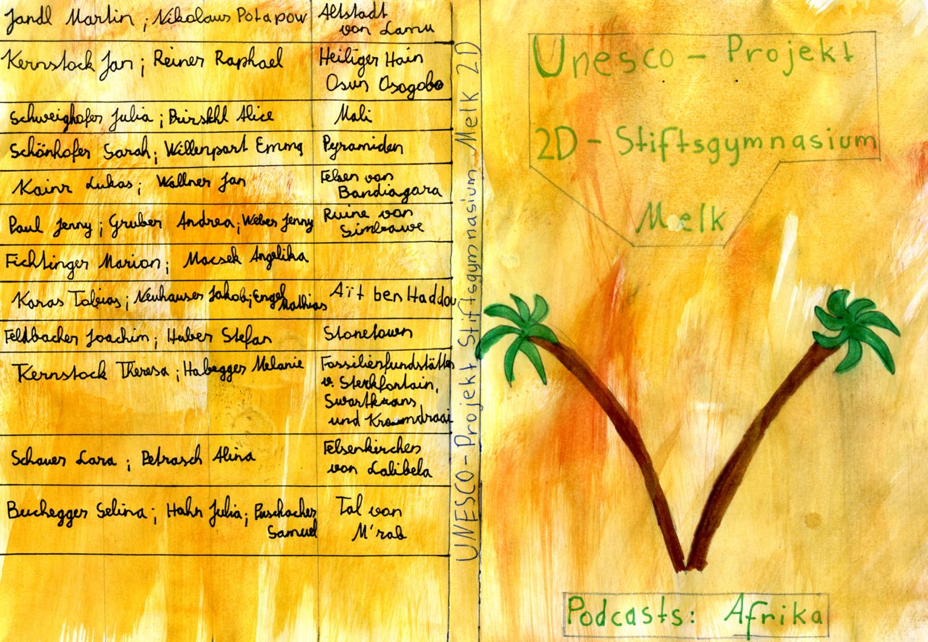 Jandl Martin ; Nikolaus Potapow
Altstadt
von Lamu
Kernstock Jan ; Reiner Raphael
Heiliger Hain
Osun Osogobo
Schweighofer Julia ; Alice
Mali
Schönhofer Sarah ; Wellenpart Emma
Pyramiden
Kainr Lukas ; Wallner Jan
Felsen von
Bandiagara
Paul Jenny ; Gruber Andrea ; Weber Jenny
Ruine von
Simbawe
Fichtinger Marion ; Macsek Angelika
Karas Tobias ; Neuhauser Jakob ; Engel
Mathias
Aït ben Haddou
Feldbacher Joachim ; Huber Stefan
Stonetown
Kernstock Theresa ; Habegger Melanie
Fossilienfundstätten
v. Sterkfontain,
Swartkrans
und Kroumdraai
Schauer Lara ; Petrasch Alina
Felsenkirchen
von Lalibela
Buchegger Selina ; Hahn Julia ; Paschacher
Samuel
Tal von
M'zab
UNESCO-Projekt Stiftsgymnasium Melk 2D
Unesco - Projekt
2D - Stiftsgymnasium
Melk
Podcasts: Afrika